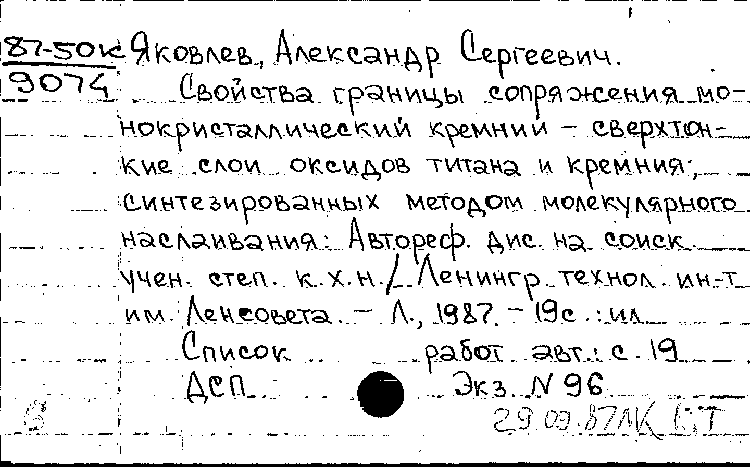 87-50к Яковлев, Александр Сергеевич.
9074 Свойства границы сопряжения мо-
нокристаллический кремний - сверхтон-
кие слои оксидов титана и кремния,
синтезированных методом молекулярного
наслаивания: Автореф. дис. на соиск.
учен. степ. к.х.н./ Ленингр. технол. ин-т
им. Ленсовета. - Л., 1987. - 19с.: ил
Список работ авт.: с. 19
ДСП Экз. N 96
29.09.87